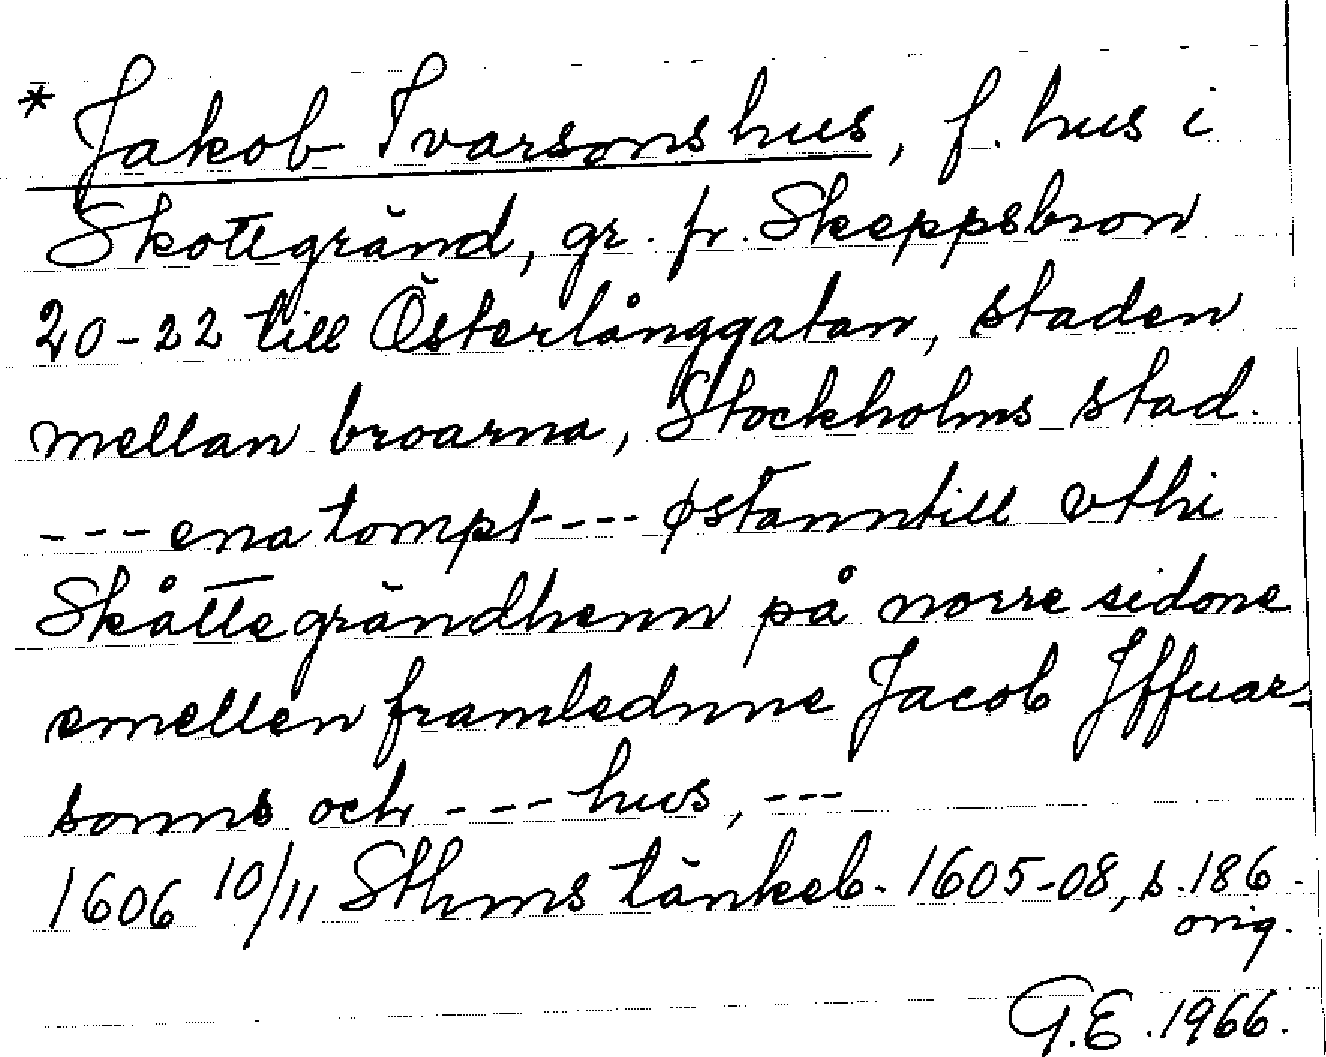 * Jakob Ivarsons hus, f. hus i
Skottgränd, gr. fr. Skeppsbron
20-22 till Österlånggatan, staden
mellan broarna, Stockholms stad.
---ena tompt--- østanntill vthi
Skåttegrändhenn på norre sidone
emellen framlednne Jacob Jffuar-
sonns och --- hus, ---
1606 10/11 Sthms tänkeb. 1605-08, s. 186.
orig.
G.E. 1966.